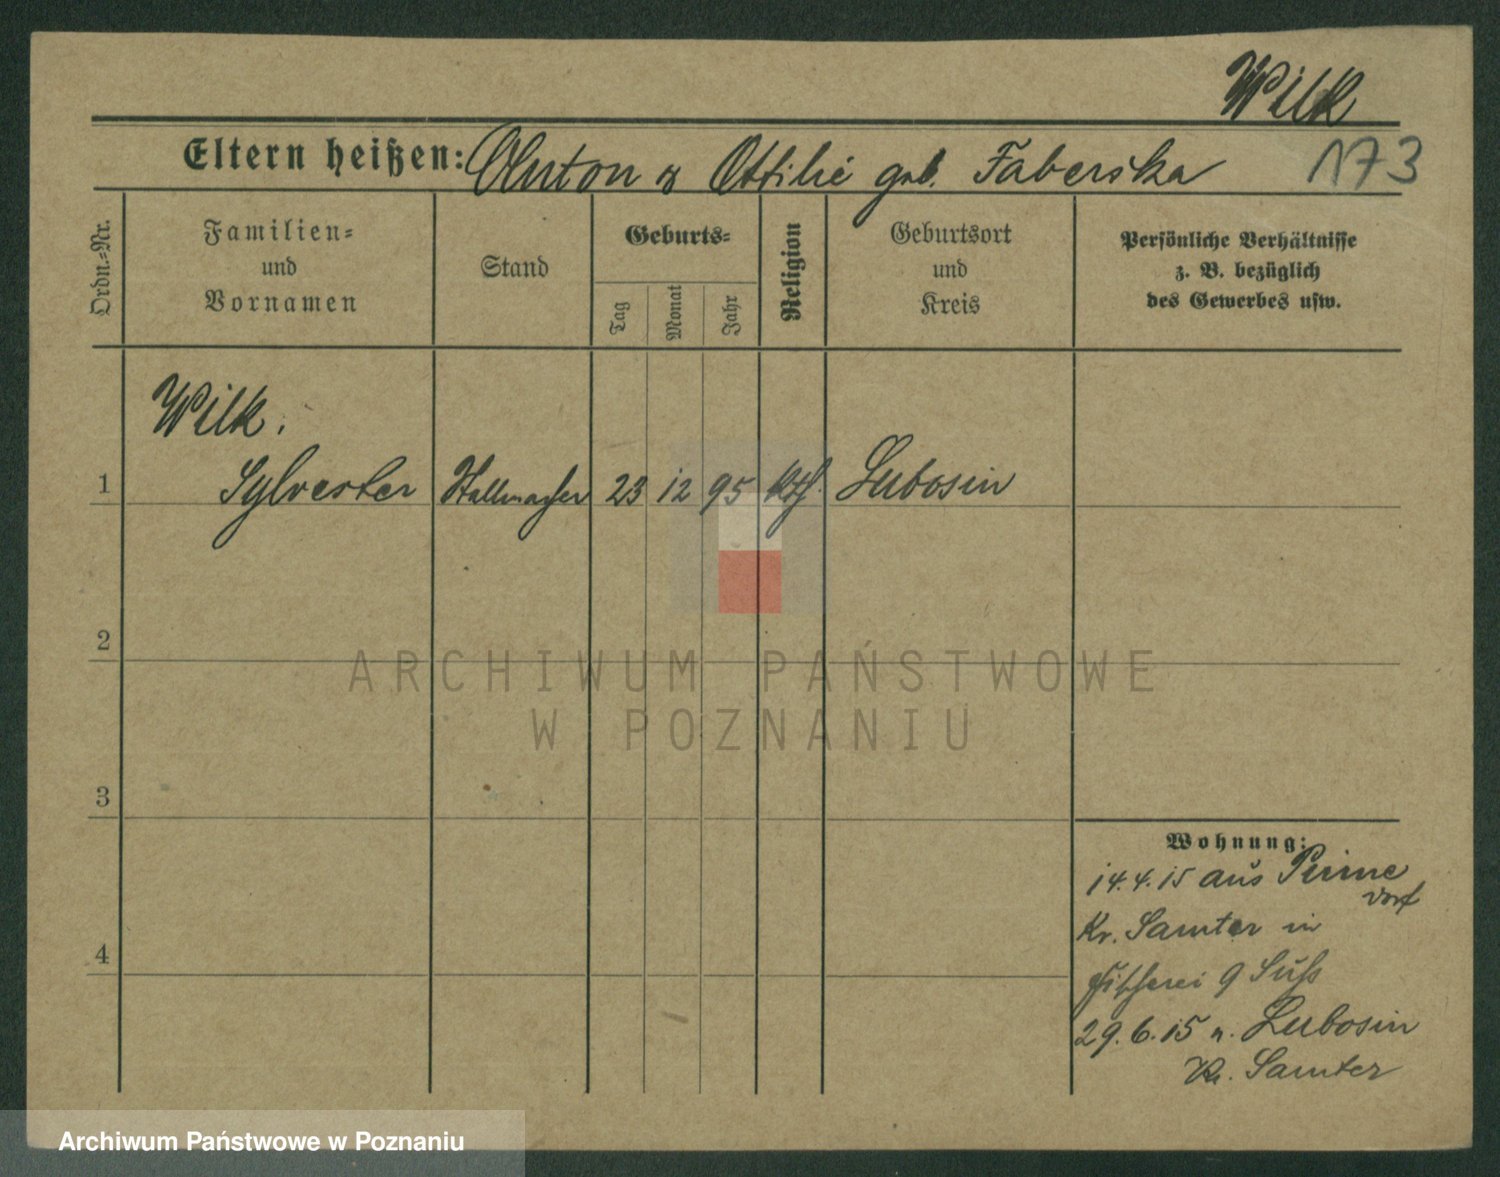 Wilk
173
Eltern heißen: Anton u Ottilie geb. Faberska
Ordn.-Nr.
Familien-
und
Vornamen
Stand
Geburts-
Tag
Monat
Jahr
Religion
Geburtsort
und
Kreis
Persönliche Verhältnisse
z. B. bezüglich
des Gewerbes usw.
Wilk.
1 Sylvester Stellmacher 23 12 95 kth. Lubosin
2
ARCHIWUM PAŃSTWOWE
W POZNANIU
3
4
Wohnung:
14.4.15 aus Pinne
dorf
Kr. Samter in
Fischerei 9 Süß
29.6.15 n. Lubosin
Kr. Samter
Archiwum Państwowe w Poznaniu